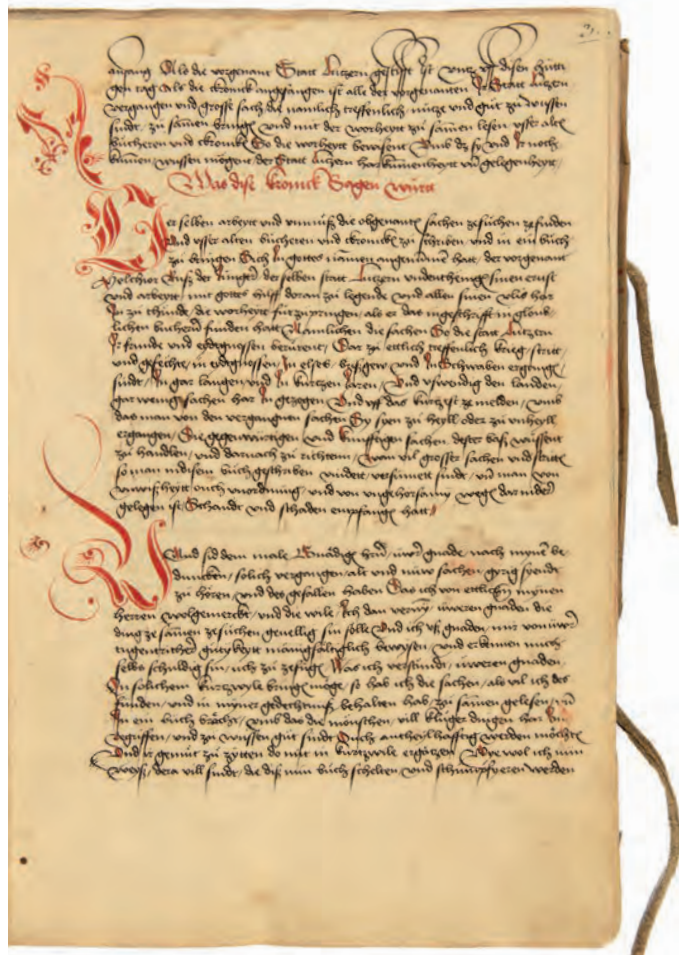 anfang Als die vorgenant Statt Lutzern gestifft ist untz uff disen hütti
gen tag Als die Cronick angefangen ist alle der vorgenanten Ir Statt Lutzern
vergangen und grosse sach die namlich treffenlich nütze und gůt zů wüssen
sindt zů samen bringen und mit der worheytt zů samen lesen usser alten
bücheren und Cronicken So die worheytt bewysent Umb dz sy und Ir noch
kumen wüssen mögent der Statt Lutzern harkumenheytt und gelegenheytt
Was dise kronick Sagen württ
Der selben arbeytt und unmůß die obgenanten sachen ze sůchen ze finden
Und usser alten bücheren und Cronicken zů schriben und in ein bůch
zů bringen Sich In gottes namen angenamen hatt der vorgenant
Melchior Růß der Jünger der selben statt Lutzern underthenig sinen ernst
und arbeytt mit gottes hilff doran zů legende und allen sinen vlis har
In zů thůnde die worheytt fürzupringen als er das ingeschrifft in gloub
lichen bücheren funden hatt Namlichen die sachen So die statt Lutzern
Ir fründe und eydgnossen berürent Dar zů ettlich treffenlich krieg stritt
und gefechte in eydgnossen In elses bryßgew und In Schwaben ergangen
sindt In gar langen und In kurtzen Jaren Und ußwendig den landen
gar wenig sachen har In gezogen Und uff das kürtzist ze melden umb
das man von den vergangnen sachen Sy syen zů heyll oder zů unheyll
ergangen Die gegenwürtigen und künfftigen sachen dester baß wüssent
zů handlen und darnach zů richtenn wan vil grosser sachen und stritten
so man in disem bůch geschriben vindett versumett sindt und man von
unwißheytt ouch unordnung und von ungehorsamy wegen dar nider
gelegen ist Schandt und schaden empfangen hatt
Und sid dem male Gnädigen herren uwer gnade nach mynem be
duncken solich vergangen alt und nüw sachen gyrig syendt
zů hören und des gefallen haben Das ich von ettlichen mynen
herren wolgemerckt und die wile Ich dan üweren gnaden die
ding ze samen ze sůchen genellig sin sölle Und ich uß gnaden mir von üwer
tugentricher gütykeytt manigfaltiglich bewysen und erkennen mich
selbs schuldig sin üch zů zefügen Was ich verstündt üweren gnaden
In solichem kurtzwyle bringen möge so hab ich die sachen als vil ich des
funden und in myner gedechtnuß behalten hab zů samen gelesen und
In ein bůch brächt umb das die mönschen vill klůger dingen har In
begriffen und zů wüssen gůt sindt Ouch antheylhafftig werden möchten
Und ir gemüt zů zytten do mit in kurtzwile ergötzen Wye wol ich nun
weyß dera vill sindt die diß min bůch schelten und schumpfyeren werden